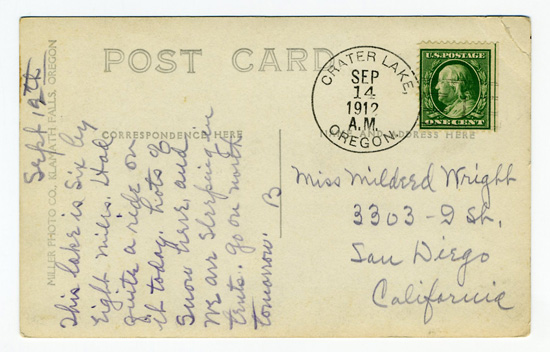 POST CARD
CRATER LAKE,
SEP
14
1912
A.M.
OREGON
U.S. POSTAGE
ONE CENT
CORRESPONDENCE HERE
NAME AND ADDRESS HERE
MILLER PHOTO CO., KLAMATH FALLS, OREGON
Sept 12th
This lake is Six by
eight miles. Had
quite a ride on
it today. Lots of
Snow here, and
We are Sleeping in
tents. Go on north
tomorrow. B
Miss Mildred Wright
3303 - I St.
San Diego
California